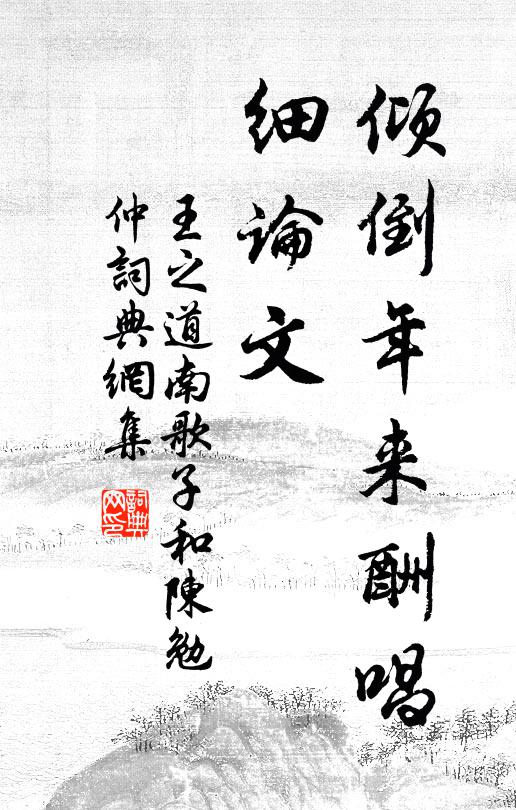 倾倒年来酬唱
细論文
王之道南歌子和陳勉
仲詞典網集
詞典
网印